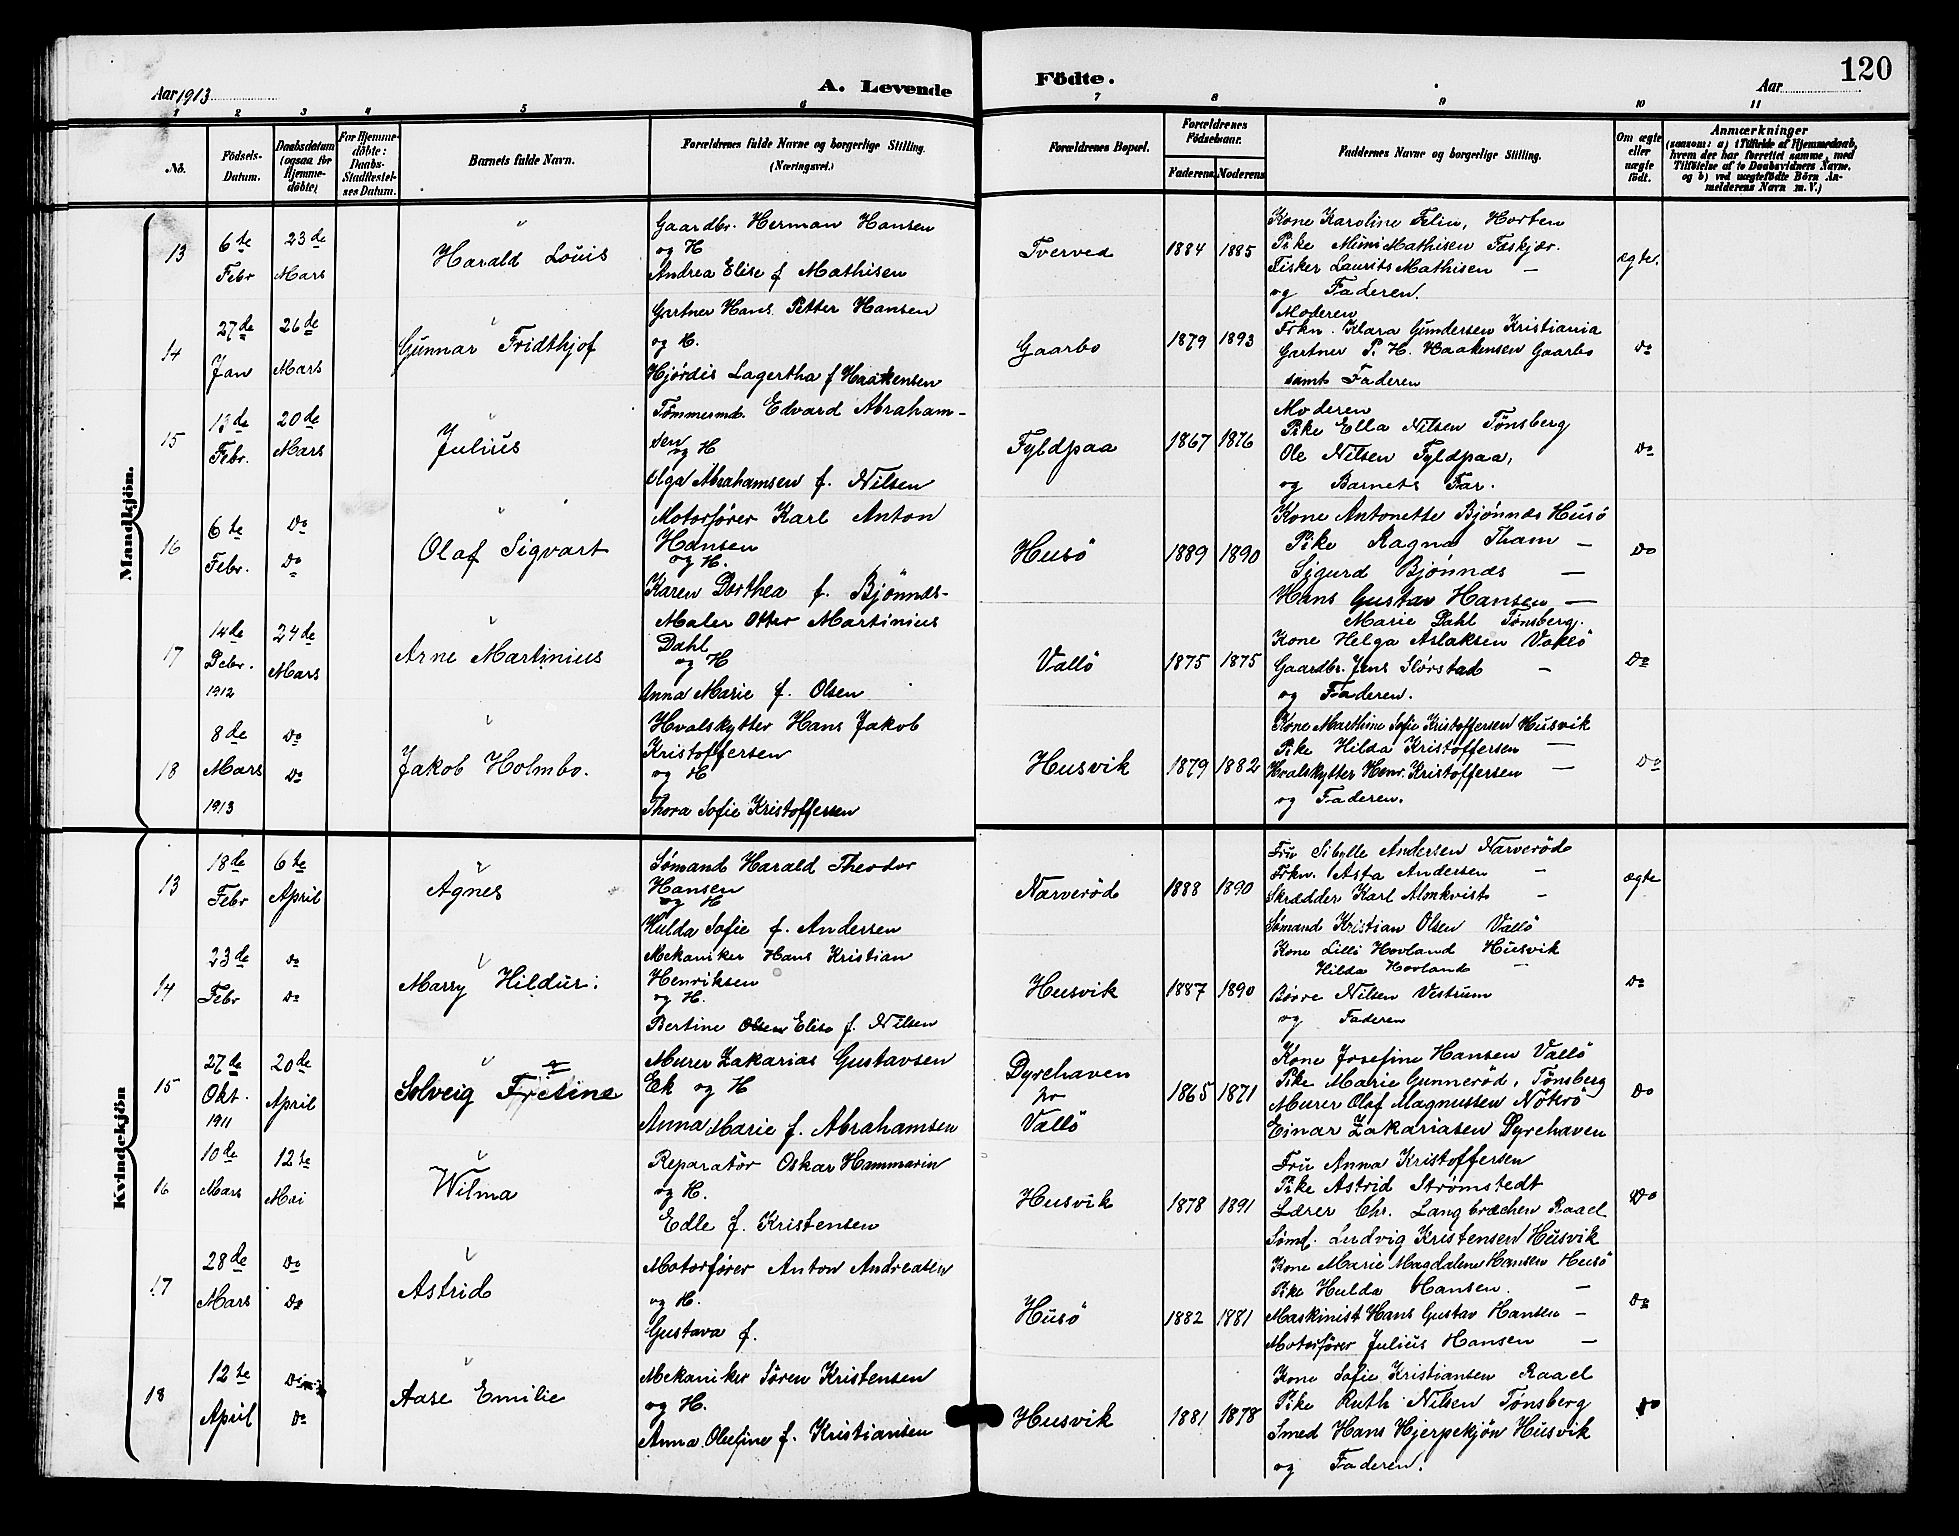 120
Aar 1913
A. Levende
Födte.
Aar
1 2 3 4 5 6 7 8 9 10 11
No.
Födsels-
Datum.
Daabsdatum
(ogsaa for
Hjemme-
döbte)
For Hjemme-
döbte:
Daabs-
Stadfæstel-
ses Datum.
Barnets fulde Navn.
Forældrenes fulde Navne og borgerlige Stilling.
(Næringsvei.)
Forældrenes Bopæl.
Forældrenes
Födselsaar.
Faderens Moderens
Faddernes Navne og borgerlige Stilling.
Om ægte
eller
uægte
födt.
Anmærkninger
(saasom: a) i Tilfælde af Hjemmedaab,
hvem der har forrettet samme, med
Tilföielse af to Daabsvidners Navne.
og b) ved uægtefödte Börn An-
melderens Navn m. V.)
Mandkjön.
13
6te
Febr
23de
Mars
Harald Louis
Gaardbr. Herman Hansen
og H
Andrea Elise f Mathisen
Tverved
1884 1885
Kone Karoline Felin, Horten
Pike Mimi Mathisen Fæskjær.
Fisker Laurits Mathisen —
og Faderen.
ægte.
14
27de
Jan
26de
Mars
Gunnar Fridthjof
Gartner Hans Petter Hansen
og H.
Hjördis Lagertha f Haakensen
Gaarbo
1879 1893
Moderen
Frkn. Klara Gundersen Kristiania
Gartner P. H. Haakensen Gaarbo
samt Faderen
Do
15
13de
Febr.
20de
Mars
Julius
Tømmermd. Edvard Abraham-
sen
og H
Olga Abrahamsen f. Nilsen
Fyldpaa
1867 1876
Moderen
Pike Ella Nilsen Tönsberg
Ole Nilsen Fyldpaa,
og Barnets Far.
Do
16
6te
Febr.
Do
Do
Olaf Sigvart
Motorfører Karl Anton
Hansen
og H.
Karen Dorthea f. Bjönnæs-
Husö
1889 1890
Kone Antonette Bjönnæs Husö
Pike Ragna Tham —
Sigurd Bjönnæs —
Hans Gustav Hansen —
Do
17
14de
Debr.
1912
24de
Mars
Arne Martinius
Maler Otter Martinius
Dahl
og H
Anna Marie f. Olsen
Vallö
1875 1875
Marie Dahl Tönsberg.
Kone Helga Aslaksen Vallö
Gaardbr. Jens Slörstad —
og Faderen.
Do
18
8de
Mars
1913
Do
Do
Jakob Holmbo.
Hvalskytter Hans Jakob
Kristoffersen
og H
Thora Sofie Kristoffersen
Husvik
1879 1882
Kone Marthine Sofie Kristoffersen Husvik
Pike Hilda Kristoffersen —
Hvalskytter Henr. Kristoffersen —
og Faderen.
Do
Kvindekjön
13
18de
Febr
6te
April
Agnes
Sømand Harald Theodor
Hansen
og H
Hulda Sofie f. Andersen
Narverød
1888 1890
Fru Sibylle Andersen Narverød
Frkn. Asta Andersen —
Skrædder Karl Almkvist —
Sømand Kristian Olsen Vallö
ægte
14
23de
Febr
do
Do
Marry Hildur.
Mekaniker Hans Kristian
Henriksen
og H.
Bertine Olsen Elise f. Nilsen
Husvik
1887 1890
Kone Lilli Hovland Husvik
Hilda Hovland —
Börre Nilsen Vestrum
og Faderen
Do
15
27de
Okt.
1911
20de
April
Solveig Fretine
Murer Zakarias Gustavsen
Ek og H
Anna Marie f. Abrahamsen
Dyrehaven
pr
Vallö
1865 1871
Kone Josefine Hansen Vallö
Pike Marie Gunneröd, Tønsberg
Murer Olaf Magnussen Nöterö
Einar Zakariasen Dyrehaven
Do
16
10de
Mars
12te
Mai
Wilma
Reparatör Oskar Hammarin
og H.
Edle f. Kristensen
Husvik
1878 1891
Fru Anna Kristoffersen
Pike Astrid Strømstedt
Lærer Chr. Langbræchen Raael
Sømd. Ludvig Kristensen Husvik
Do
17
28de
Mars
Do
Do
Astrid
Motorfører Anton Andreasen
og H.
Gustava f.
Husö
1882 1881
Kone Marie Magdalene Hansen Husö
Pike Hulda Hansen. —
Maskinist Hans Gustav Hansen —
Motorfører Julius Hansen —
Do
18
12te
April
Do
Do
Aase Emilie
Mekaniker Sören Kristensen
og H.
Anna Olufine f. Kristiansen
Husvik
1881 1878
Kone Sofie Kristiansen Raael
Pike Ruth Nilsen Tönsberg
Smed Hans Hjerpekjön Husvik
og Faderen.
Do